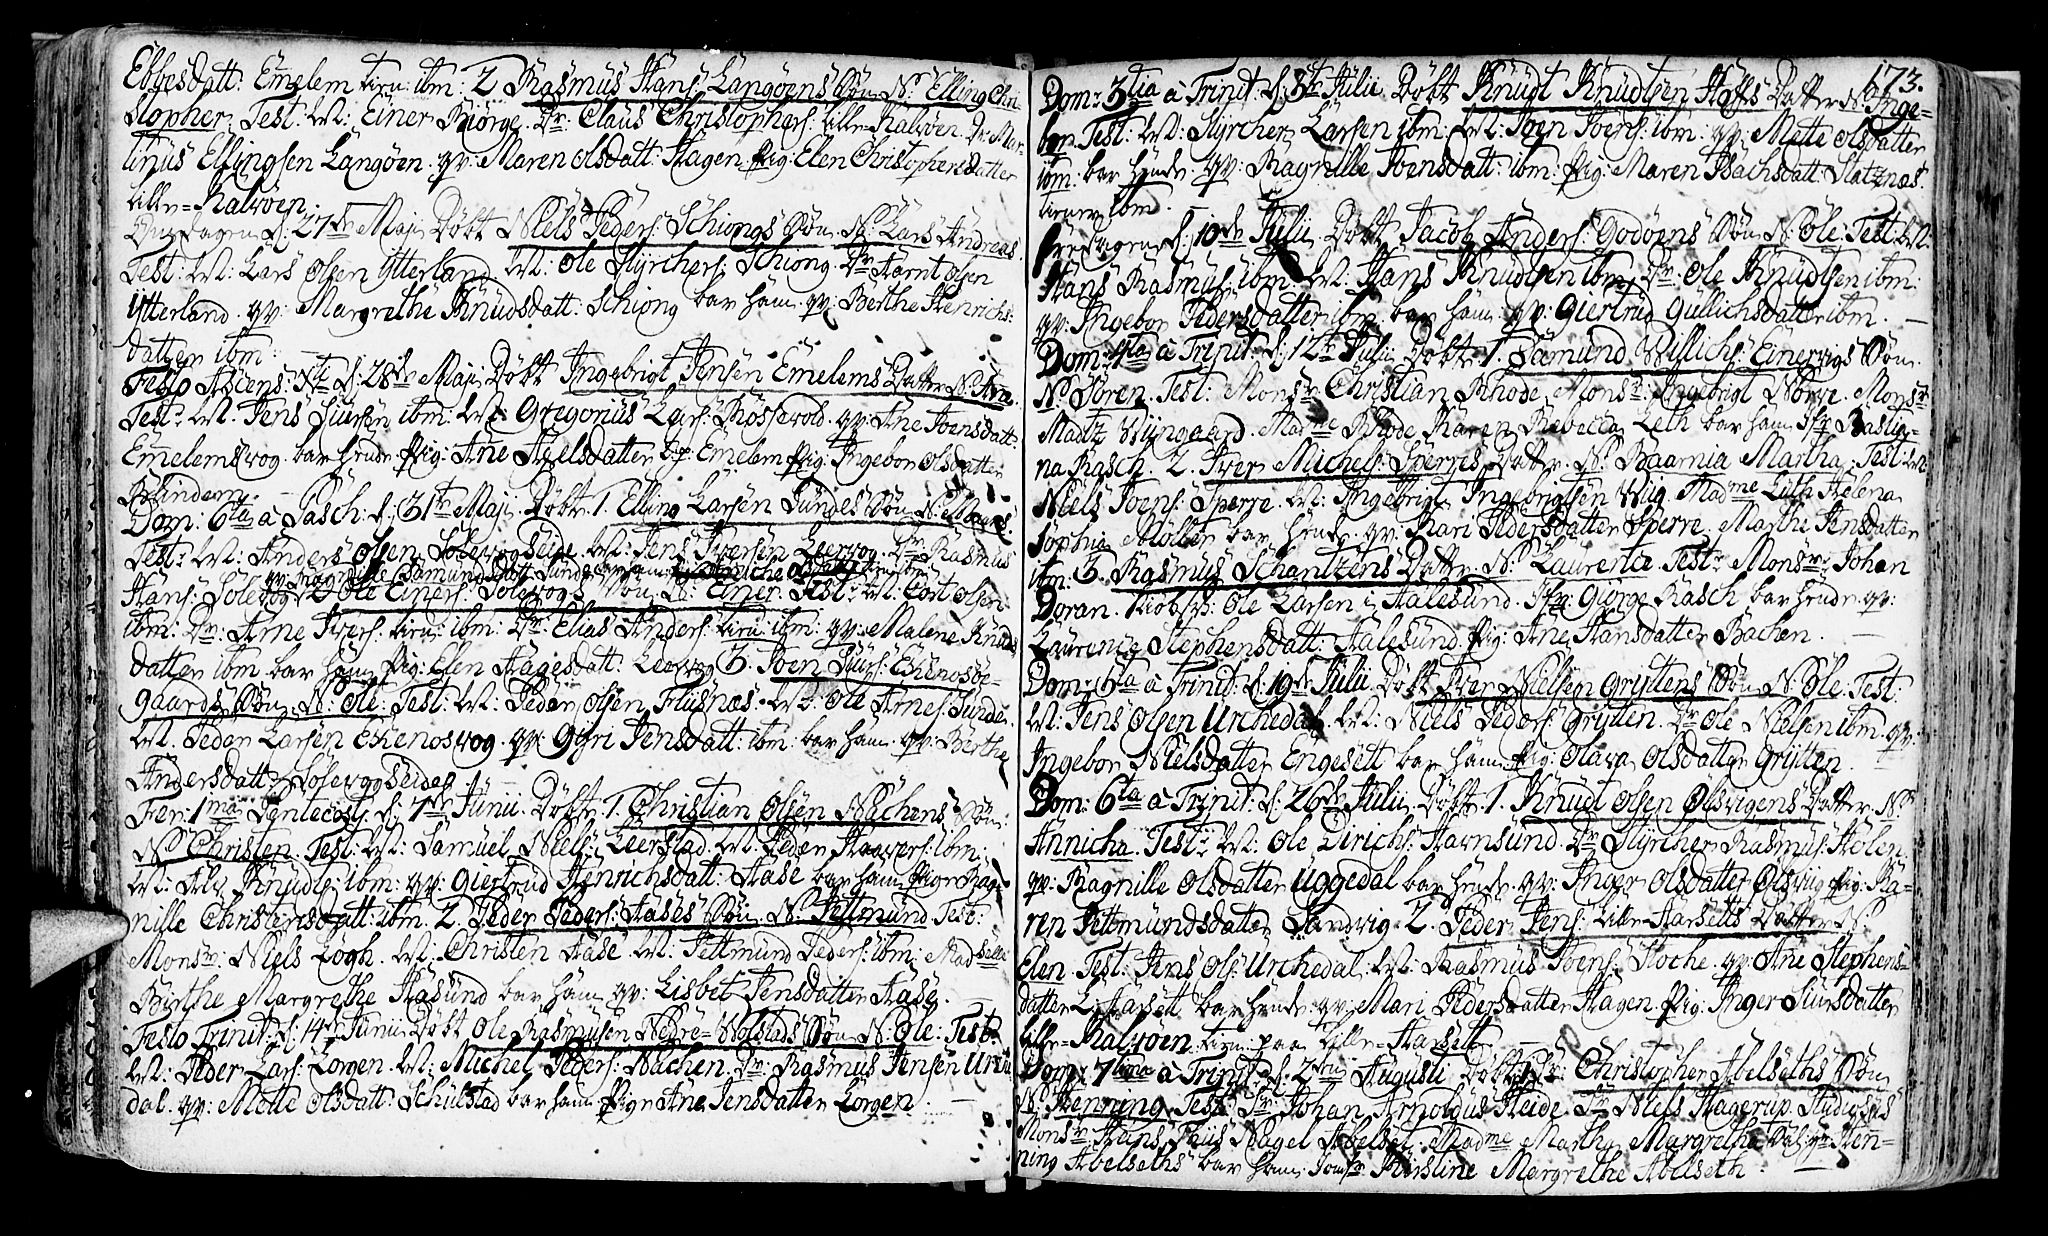 Ebbesdatt: Emelem tien: ibm: 2. Rasmus Hans: Langöens Søn N: Elling Chri
stopher. Test: Wl: Einer Biörge. Dr: Claus Christophers: Lille Kalvöen. Dr: Mar-
tinus Ellingsen Langöen. qv: Maren Olsdatt: Hagen. Pig: Elen Christophersdatter
Lille-Kalvöen.
Onsdagen d: 27de Maji Döbt Niels Peders: Schiongs Søn N: Lars Andreas
Test: Wl: Lars Olsen Ytterland. Wl: Ole Styrchers: Schiong. Dr: Arnt Olsen
Ytterland. qv: Margrethe Knudsdatt: Schiong bar ham. qv: Berthe Henrichs:
datter ibm:
Festo Ascens: d: 28de Maji Döbt Ingebrigt Jensen Emelems Datter N: Ane.
Test: Wl: Jens Siursen ibm: Wl: Gregorius Lars: Rössevold. qv: Ane Joensdatt:
Emelemsvog. bar hende. Pig: Ane Axelsdatter Emelem Pig: Ingebor Olsdatter
Blindem.
Dom: 6ta a Pasch: d: 31te Maji Döbt 1. Elling Larsen Sundes Søn N:
Test: Wl: Anders Olsen Solevogseide. Wl: Jens Iversen Leervog. Dr: Rasmus
qv: Magrethe Samundsdatt: Sunde bar ham
Hans: Solevog 2 Ole Einers: Solevogs Søn N: Einer Test: Wl: Cort Olsen
ibm: Dr: Arne Ivers: tien: ibm: Dr: Elias Anders: tien: ibm: qv: Malene Knuds
datter ibm. bar ham Pig: Elen Aagesdatt: Leervog 3. Joen Siurs: Exenosöe-
gaards Søn. N: Ole: Test: Wl: Peder Olsen Fliisnæs. Wl: Ole Arnes: Sunde.
Wl. Peder Larsen Exenosvog. qv: Gyri Jensdatt: ibm: bar ham. qv: Berthe
Andersdatt: Solevogseidet
Fer: 1ma Pentecost: d: 7de Junii Döbt 1. Christian Olsen Nachens Søn
N: Christen. Test: Wl: Samuel Niels: Leerstad. Wl: Peder Haavers: ibm:
Wl: Knuds: ibm: qv: Giertrud Henrichsdatt: Aase bar ham. Pige Rag-
nille Christensdatt: ibm. 2. Peder Peders: Aases Søn. N: Pettmund Test:
Monsr: Niels Logh. Wl: Christen Aase. Wl: Pettmund Peders: ibm: Madselle
Birthe Margrethe Aasund bar ham qv: Lisbet Jensdatter Aase.
Festo Trinit: d: 14de Junii Döbt Ole Rasmusen Nedre-Nolstads Søn N: Ole: Test:
Wl: Peder Lars: Lorgen. Wl: Michel Peders: Nachen. Dr: Rasmus Jensen Urke
dal. qv: Mette Olsdatt: Schulstad bar ham. Pige Ane Jensdatter Lorgen.
173.
Dom: 3tia a Trinit: d: 5te Julii Döbt Knudt Knudtsen Hatts Datter N: Inge-
bor Test: Wl: Styrcher Larsen ibm: Wl: Joen Joens: ibm: qv: Mette Olsdatter
ibm. bar hende. qv: Ragnille Joensdatt: ibm: Pig: Maren Isachsdatt: Slatznæs.
tiener ibm.
Fredagen d: 10de Julii Döbt Jacob Anders: Godöens Søn N: Ole: Test: Wl:
Hans Rasmus: ibm. Wl: Hans Knudtsen ibm: Dr: Ole Knudtsen ibm:
qv: Ingebor Pedersdatter ibm. bar ham. qv: Giertrud Gullichsdatter ibm.
Dom: 4ta a Trinit: d: 12te Julii Döbt 1. Samund Willichs: Einervigs Søn.
N: Sören. Test: Monsr: Christian Rhode. Monsr: Ingebrigt Norre. Monsr:
Madtz Wiingaard. Madme Rhode Karen Rebecca Leth bar ham Jfr: Bastia-
na Rasch. 2. Iver Michels: Sperres Datter N: Baarnia Martha. Test: Wl:
Niels Joens: Sperre. Wl: Ingebrigt Ingebrigtsen Wiig. Madme Luth Helena
Sophia Moller bar hende. qv: Kari Pedersdatter Sperre. Marthe Jensdatter
ibm. 3. Rasmus Schantzens Datter N: Laurentce. Test: Monsr: Johan
Doran. Ole Larsen i Aalesund. Jfr: Giörge Rasch bar hende. qv:
Laurence Stephensdatt: Aalesund. Pig: Ane Hansdatter Bachen.
Dom: 5ta a Trinit: d: 19de Julii Döbt Iver Nielsen Grytens Søn N: Ole. Test:
Wl: Jens Olsen Urchedal. Wl: Niels Peders: Gryten. Dr: Ole Nielsen ibm. qv:
Ingebor Nielsdatter Engesett bar ham. Pig: Olava Olsdatter Gryten.
Dom: 6ta a Trinit: d: 26de Julii Döbt 1. Knudt Olsen Olsvigens Datter N:
Annicha. Test: Wl: Ole Dirichs: Hamnsund. Dr: Styrcher Rasmus: Holen.
qv: Ragnille Olsdatter Uggedal bar hende. qv: Inger Olsdatter Olsvig. Pig: Ka-
ren Pettmundsdatter Sandvig. 2. Peder Jens: Lille Harsetts Datter N:
Elen. Test: Jens Ols: Urchedal. Wl: Rasmus Joens: Stoche. qv: Ane Stephens-
datter L: Harsett bar hende. qv: Mari Pedersdatter Hagen. Pig: Inger Siursdatter
Lille-Kalvöen tien: paa Lille-Harsett.
Dom: 7tima a Trinit: d: 2den Augusti Döbt Hr: Christopher Abelseths Søn
N: Henning. Test: Hr: Johan Arnoldus Heide. Hr: Niels Hagerup. Studiosus
Monsr: Hans Friis Nagel Abelset. Madme Martha Margretha Hen-
ning Abelseths bar ham. Jomfr: Kirstine Margrethe Abelseth.